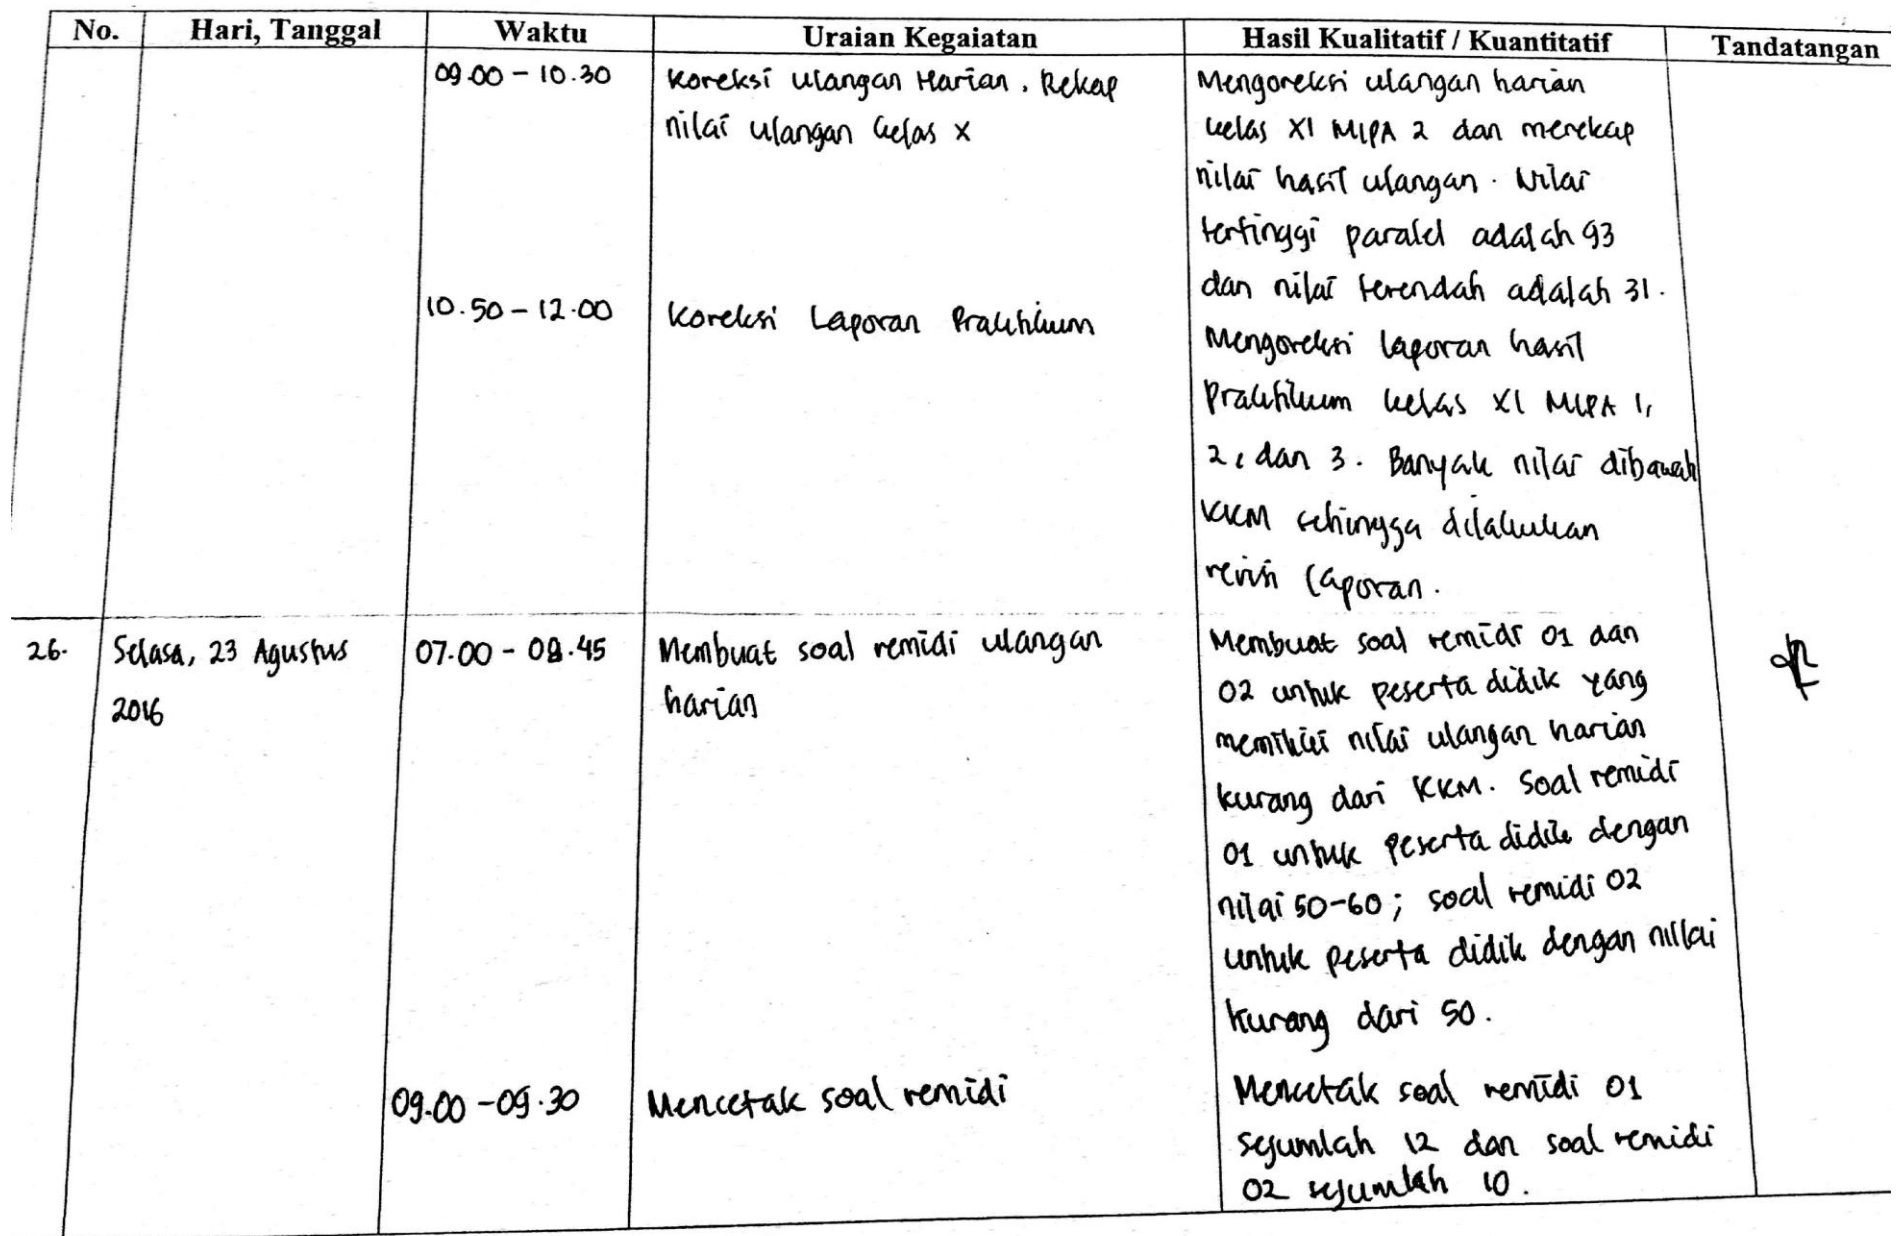 No. Hari, Tanggal Waktu Uraian Kegaiatan Hasil Kualitatif / Kuantitatif Tandatangan
09.00 - 10.30
Koreksi ulangan Harian. Rekap
nilai ulangan kelas X
Mengoreksi ulangan harian
kelas XI MIPA 2 dan merekap
nilai hasil ulangan. Nilai
tertinggi paralel adalah 93
dan nilai terendah adalah 31.
10.50 - 12.00
Koreksi Laporan Praktikum
Mengoreksi laporan hasil
Praktikum kelas XI MIPA 1,
2, dan 3. Banyak nilai dibawah
KKM sehingga dilakukan
revisi laporan.
26. Selasa, 23 Agustus
2016
07.00 - 08.45
Membuat soal remidi ulangan
harian
Membuat soal remidi 01 dan
02 untuk peserta didik yang
memiliki nilai ulangan harian
kurang dari KKM. Soal remidi
01 untuk peserta didik dengan
nilai 50-60; soal remidi 02
untuk peserta didik dengan nillai
kurang dari 50.
09.00 - 09.30
Mencetak soal remidi
Mencetak soal remidi 01
sejumlah 12 dan soal remidi
02 sejumlah 10.